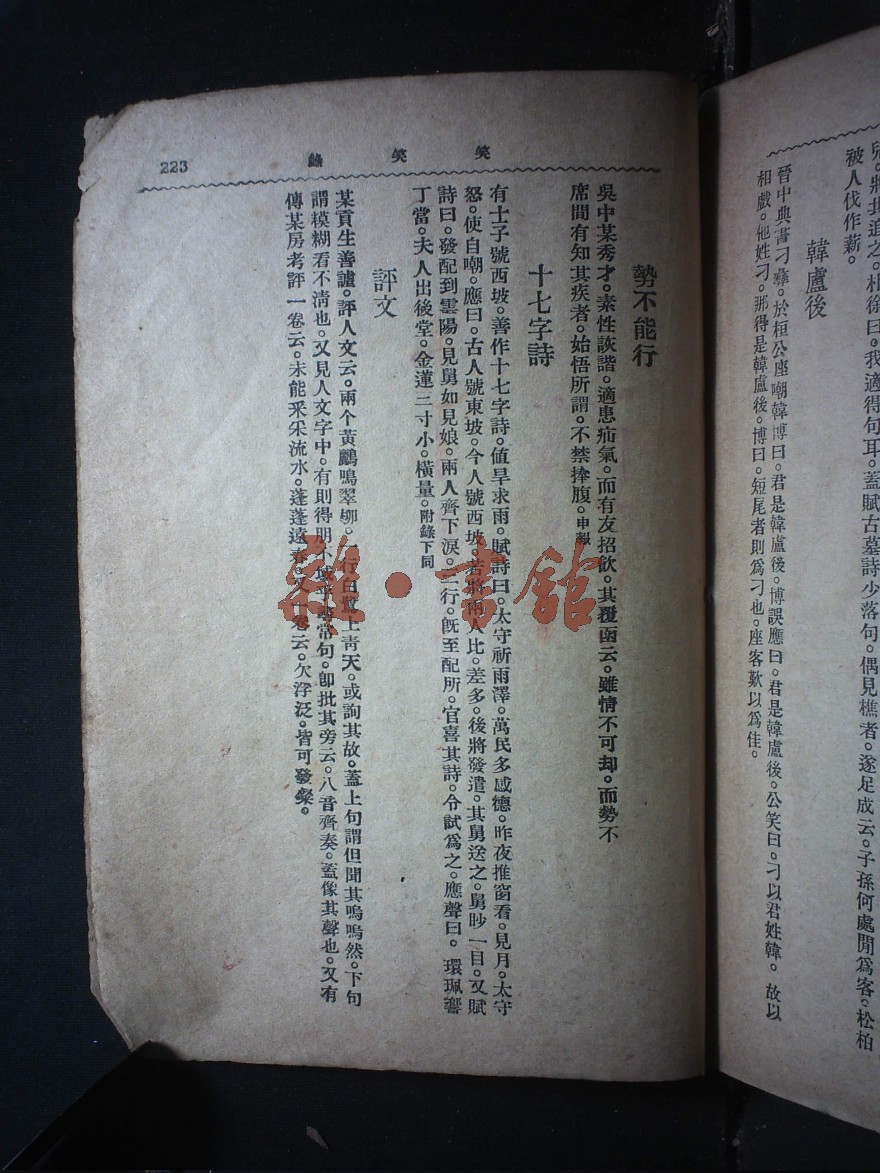 兒。將其追之。朴徐曰。我適得句耳。蓋賦古墓詩少落句。偶見樵者。遂足成云。子孫何處閒爲客。松柏
被人伐作薪。
韓盧後
晉中典書刁彝。於桓公座嘲韓博曰。君是韓盧後。博誤應曰。君是韓盧後。公笑曰。刁以君姓韓。故以
相戲。他姓刁。那得是韓盧後。博曰。短尾者則爲刁也。座客歎以爲佳。
笑笑錄
223
勢不能行
吳中某秀才。素性詼諧。適患疝氣。而有友招飲。其覆函云。雖情不可却。而勢不
席間有知其疾者。始悟所謂。不禁捧腹。申報
十七字詩
有士子號西坡。善作十七字詩。值旱求雨。賦詩曰。太守祈雨澤。萬民多感德。昨夜推窗看。見月。太守
怒。使自嘲。應曰。古人號東坡。今人號西坡。若將兩人比。差多。後將發遣。其舅送之。舅眇一目。又賦
詩曰。發配到雲陽。見舅如見娘。兩人齊下淚。三行。旣至配所。官喜其詩。令試爲之。應聲曰。環珮響
丁當。夫人出後堂。金蓮三寸小。橫量。附錄下同
評文
某貢生善謔。評人文云。兩个黃鸝鳴翠柳。一行白鷺上靑天。或詢其故。蓋上句謂但聞其嗚嗚然。下句
謂糢糊看不清也。又見人文字中。有則得朋不域乎尋常句。卽批其旁云。八音齊奏。蓋像其聲也。又有
傳某房考評一卷云。未能釆釆流水。蓬蓬遠春。又一卷云。欠浮泛。皆可發粲。
雜·書館